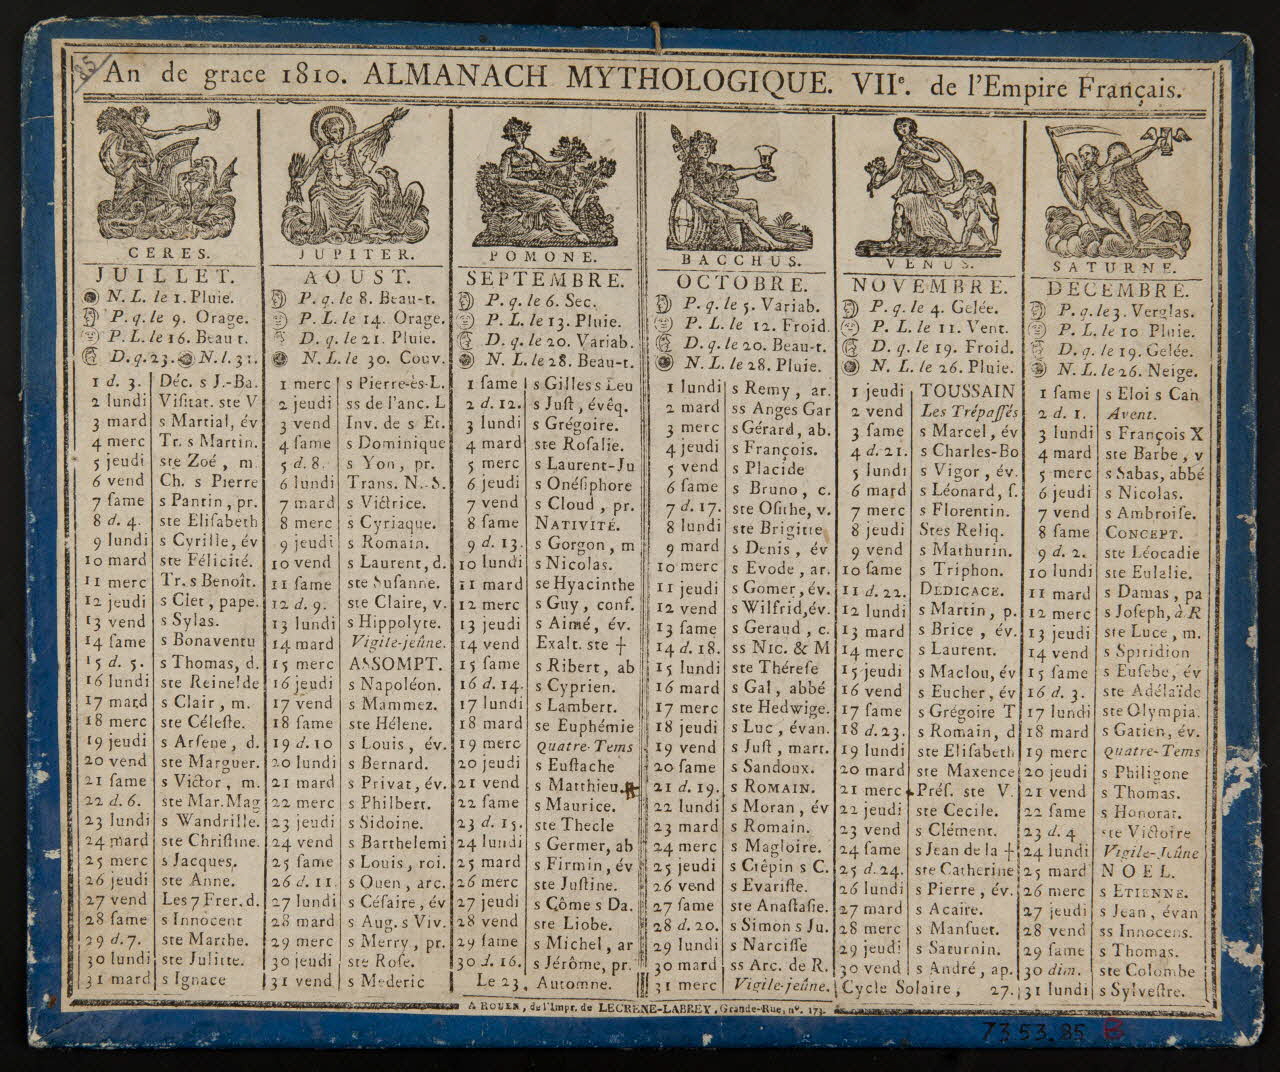 85
An de grace 1810. ALMANACH MYTHOLOGIQUE. VIIe. de l'Empire Français.
CERES.
JUILLET.
N. L. le 1. Pluie.
P. q. le 9. Orage.
P. L. le 16. Beau t.
D. q. 23. N. l. 31.
1 d. 3. Déc. s J.-Ba.
2 lundi Visitat. ste V
3 mard s Martial, év
4 merc Tr. s Martin.
5 jeudi ste Zoé, m.
6 vend Ch. s Pierre
7 same s Pantin, pr.
8 d. 4. ste Elisabeth
9 lundi s Cyrille, év
10 mard ste Félicité.
11 merc Tr. s Benoît.
12 jeudi s Clet, pape.
13 vend s Sylas.
14 same s Bonaventu
15 d. 5. s Thomas, d.
16 lundi ste Reinelde
17 mard s Clair, m.
18 merc ste Céleste.
19 jeudi s Arsene, d.
20 vend ste Marguer.
21 same s Victor, m.
22 d. 6. ste Mar. Mag
23 lundi s Wandrille.
24 mard ste Christine.
25 merc s Jacques.
26 jeudi ste Anne.
27 vend Les 7 Frer. d.
28 same s Innocent
29 d. 7. ste Marthe.
30 lundi ste Julitte.
31 mard s Ignace
JUPITER.
AOUST.
P. q. le 8. Beau-t.
P. L. le 14. Orage.
D. q. le 21. Pluie.
N. L. le 30. Couv.
1 merc s Pierre-ès-L.
2 jeudi ss de l'anc. L
3 vend Inv. de s Et.
4 same s Dominique
5 d. 8. s Yon, pr.
6 lundi Trans. N.-S.
7 mard s Victrice.
8 merc s Cyriaque.
9 jeudi s Romain.
10 vend s Laurent, d.
11 same ste Susanne.
12 d. 9. ste Claire, v.
13 lundi s Hippolyte.
14 mard Vigile-jeûne.
15 merc ASSOMPT.
16 jeudi s Napoléon.
17 vend s Mammez.
18 same ste Hélene.
19 d. 10 s Louis, év.
20 lundi s Bernard.
21 mard s Privat, év.
22 merc s Philbert.
23 jeudi s Sidoine.
24 vend s Barthelemi
25 same s Louis, roi.
26 d. 11. s Ouen, arc.
27 lundi s Césaire, év
28 mard s Aug. s Viv.
29 merc s Merry, pr.
30 jeudi ste Rose.
31 vend s Mederic
POMONE.
SEPTEMBRE.
P. q. le 6. Sec.
P. L. le 13. Pluie.
D. q. le 20. Variab.
N. L. le 28. Beau-t.
1 same s Gilles s Leu
2 d. 12. s Just, évêq.
3 lundi s Grégoire.
4 mard ste Rosalie.
5 merc s Laurent-Ju
6 jeudi s Onésiphore
7 vend s Cloud, pr.
8 same NATIVITÉ.
9 d. 13. s Gorgon, m
10 lundi s Nicolas.
11 mard se Hyacinthe
12 merc s Guy, conf.
13 jeudi s Aimé, év.
14 vend Exalt. ste †
15 same s Ribert, ab
16 d. 14. s Cyprien.
17 lundi s Lambert.
18 mard se Euphémie
19 merc Quatre-Tems
20 jeudi s Eustache
21 vend s Matthieu.
22 same s Maurice.
23 d. 15. ste Thecle
24 lundi s Germer, ab
25 mard s Firmin, év
26 merc ste Justine.
27 jeudi s Côme s Da.
28 vend ste Liobe.
29 same s Michel, ar
30 d. 16. s Jérôme, pr.
Le 23, Automne.
BACCHUS.
OCTOBRE.
P. q. le 5. Variab.
P. L. le 12. Froid.
D. q. le 20. Beau-t.
N. L. le 28. Pluie.
1 lundi s Remy, ar.
2 mard ss Anges Gar
3 merc s Gérard, ab.
4 jeudi s François.
5 vend s Placide
6 same s Bruno, c.
7 d. 17. ste Osithe, v.
8 lundi ste Brigitte
9 mard s Denis, év
10 merc s Evode, ar.
11 jeudi s Gomer, év.
12 vend s Wilfrid, év.
13 same s Geraud, c.
14 d. 18. ss Nic. & M
15 lundi ste Thérese
16 mard s Gal, abbé
17 merc ste Hedwige.
18 jeudi s Luc, évan.
19 vend s Just, mart.
20 same s Sandoux.
21 d. 19. s ROMAIN.
22 lundi s Moran, év
23 mard s Romain.
24 merc s Magloire.
25 jeudi s Crêpin s C.
26 vend s Evariste.
27 same ste Anastasie.
28 d. 20. s Simon s Ju.
29 lundi s Narcisse
30 mard ss Arc. de R.
31 merc Vigile-jeûne.
VENUS.
NOVEMBRE.
P. q. le 4. Gelée.
P. L. le 11. Vent.
D. q. le 19. Froid.
N. L. le 26. Pluie.
1 jeudi TOUSSAIN
2 vend Les Trépassés
3 same s Marcel, év
4 d. 21. s Charles-Bo
5 lundi s Vigor, év.
6 mard s Léonard, s.
7 merc s Florentin.
8 jeudi Stes Reliq.
9 vend s Mathurin.
10 same s Triphon.
11 d. 22. DEDICACE.
12 lundi s Martin, p.
13 mard s Brice, év.
14 merc s Laurent.
15 jeudi s Maclou, év
16 vend s Eucher, év
17 same s Grégoire T
18 d. 23. s Romain, d
19 lundi ste Elisabeth
20 mard ste Maxence
21 merc Prés. ste V.
22 jeudi ste Cecile.
23 vend s Clément.
24 same s Jean de la †
25 d. 24. ste Catherine
26 lundi s Pierre, év.
27 mard s Acaire.
28 merc s Mansuet.
29 jeudi s Saturnin.
30 vend s André, ap.
Cycle Solaire, 27.
SATURNE.
DECEMBRE.
P. q. le 3. Verglas.
P. L. le 10 Pluie.
D. q. le 19. Gelée.
N. L. le 26. Neige.
1 same s Eloi s Can
2 d. 1. Avent.
3 lundi s François X
4 mard ste Barbe, v
5 merc s Sabas, abbé
6 jeudi s Nicolas.
7 vend s Ambroise.
8 same CONCEPT.
9 d. 2. ste Léocadie
10 lundi ste Eulalie.
11 mard s Damas, pa
12 merc s Joseph, d'R
13 jeudi ste Luce, m.
14 vend s Spiridion
15 same s Eusebe, év
16 d. 3. ste Adélaïde
17 lundi ste Olympia.
18 mard s Gatien, év.
19 merc Quatre-Tems
20 jeudi s Philigone
21 vend s Thomas.
22 same s Honorat.
23 d. 4 ste Victoire
24 lundi Vigile-Jeûne
25 mard NOEL.
26 merc s ETIENNE.
27 jeudi s Jean, évan
28 vend ss Innocens.
29 same s Thomas.
30 dim. ste Colombe
31 lundi s Sylvestre.
A ROUEN, de l'Impr. de LECRENE-LABBEY, Grande-Rue, n°. 173.
73 53.85 B